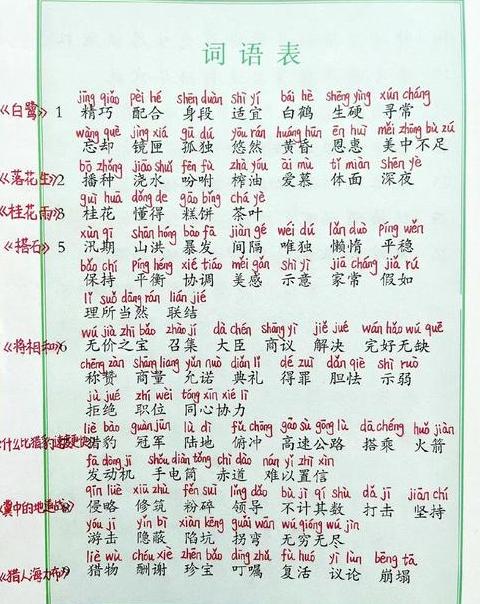 词语表
jīng qiǎo pèi hé shēn duàn shì yí bái hè shēng yìng xún cháng
《白鹭》 1 精巧 配合 身段 适宜 白鹤 生硬 寻常
wàng què jìng xiá gū dú yōu rán huáng hūn ēn huì měi zhōng bù zú
忘却 镜匣 孤独 悠然 黄昏 恩惠 美中不足
bō zhǒng jiāo shuǐ fēn fù zhà yóu ài mù tǐ miàn shēn yè
《落花生》 2 播种 浇水 吩咐 榨油 爱慕 体面 深夜
guì huā dǒng de gāo bǐng chá yè
《桂花雨》 3 桂花 懂得 糕饼 茶叶
xùn qī shān hóng bào fā jiàn gé wéi dú lǎn duò píng wěn
《搭石》 5 汛期 山洪 暴发 间隔 唯独 懒惰 平稳
bǎo chí píng héng xié tiáo měi gǎn shì yì jiā cháng jiǎ rú
保持 平衡 协调 美感 示意 家常 假如
lǐ suǒ dāng rán lián jié
理所当然 联结
wú jià zhī bǎo zhào jí dà chén shāng yì jiě jué wán hǎo wú quē
《将相和》 6 无价之宝 召集 大臣 商议 解决 完好无缺
chēng zàn shāng liang yǔn nuò diǎn lǐ dé zuì dǎn qiè shì ruò
称赞 商量 允诺 典礼 得罪 胆怯 示弱
jù jué zhí wèi tóng xīn xié lì
拒绝 职位 同心协力
liè bào guàn jūn lù dì fǔ chōng gāo sù gōng lù dā chéng huǒ jiàn
什么比猎豹速度更快 猎豹 冠军 陆地 俯冲 高速公路 搭乘 火箭
fā dòng jī shǒu diàn tǒng chì dào nán yǐ zhì xìn
发动机 手电筒 赤道 难以置信
qīn lüè xiū zhù fěn suì lǐng dǎo bù jì qí shù dǎ jī jiān chí
冀中的地道战 侵略 修筑 粉碎 领导 不计其数 打击 坚持
yóu jī yǐn bì xiàn kēng guǎi wān wú qióng wú jìn
游击 隐蔽 陷坑 拐弯 无穷无尽
liè wù chóu xiè zhēn bǎo dīng zhǔ fù huó yì lùn bēng tā
《猎人海力布》 9 猎物 酬谢 珍宝 叮嘱 复活 议论 崩塌